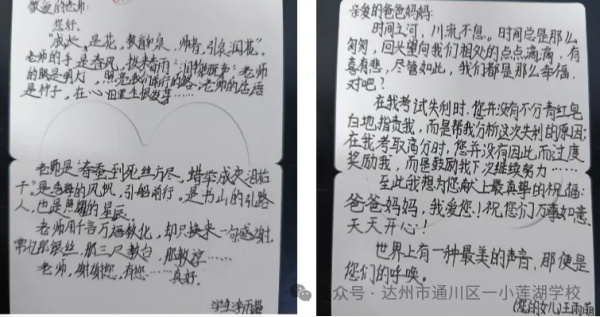 敬爱的老师:
您好.
"成长,是花,教育如泉,师者,引泉润花".
老师的手是春风,扶来春雨;润物既来;老师
的眼是明灯,照亮我们前行的路;老师的话语
是种子,在心田里生根发芽……
老师是"春蚕到死丝方尽,蜡炬成灰泪始
干"是海阔的风帆,引船前行.是书山的引路
人,也是照耀的星辰.
老师用千言万语教化,却只换来一句感谢.
常忆那银丝,那三尺教台,那教控……
老师,谢谢您,有您……真好.
学生:李雨蔓
亲爱的爸爸妈妈:
时间之河,川流不息。时间总是那么
匆匆,回头望向我们相处的点点滴滴,有
喜有悲,尽管如此,我们都是那么幸福,
对吧?
在我考试失利时,您并没有不分青红皂
白地指责我,而是帮我分析这次失利的原因;
在我考取高分时,您并没有因此而过度
奖励我,而是鼓励我下次继续努力……
至此我想为您献上最真挚的祝福:
爸爸妈妈,我爱您!祝您们万事如意,
天天开心!
世界上有一种最美的声音,那便是
您们的呼唤。
(您的女儿)王雨萌
公众号·达州市通川区一小莲湖学校